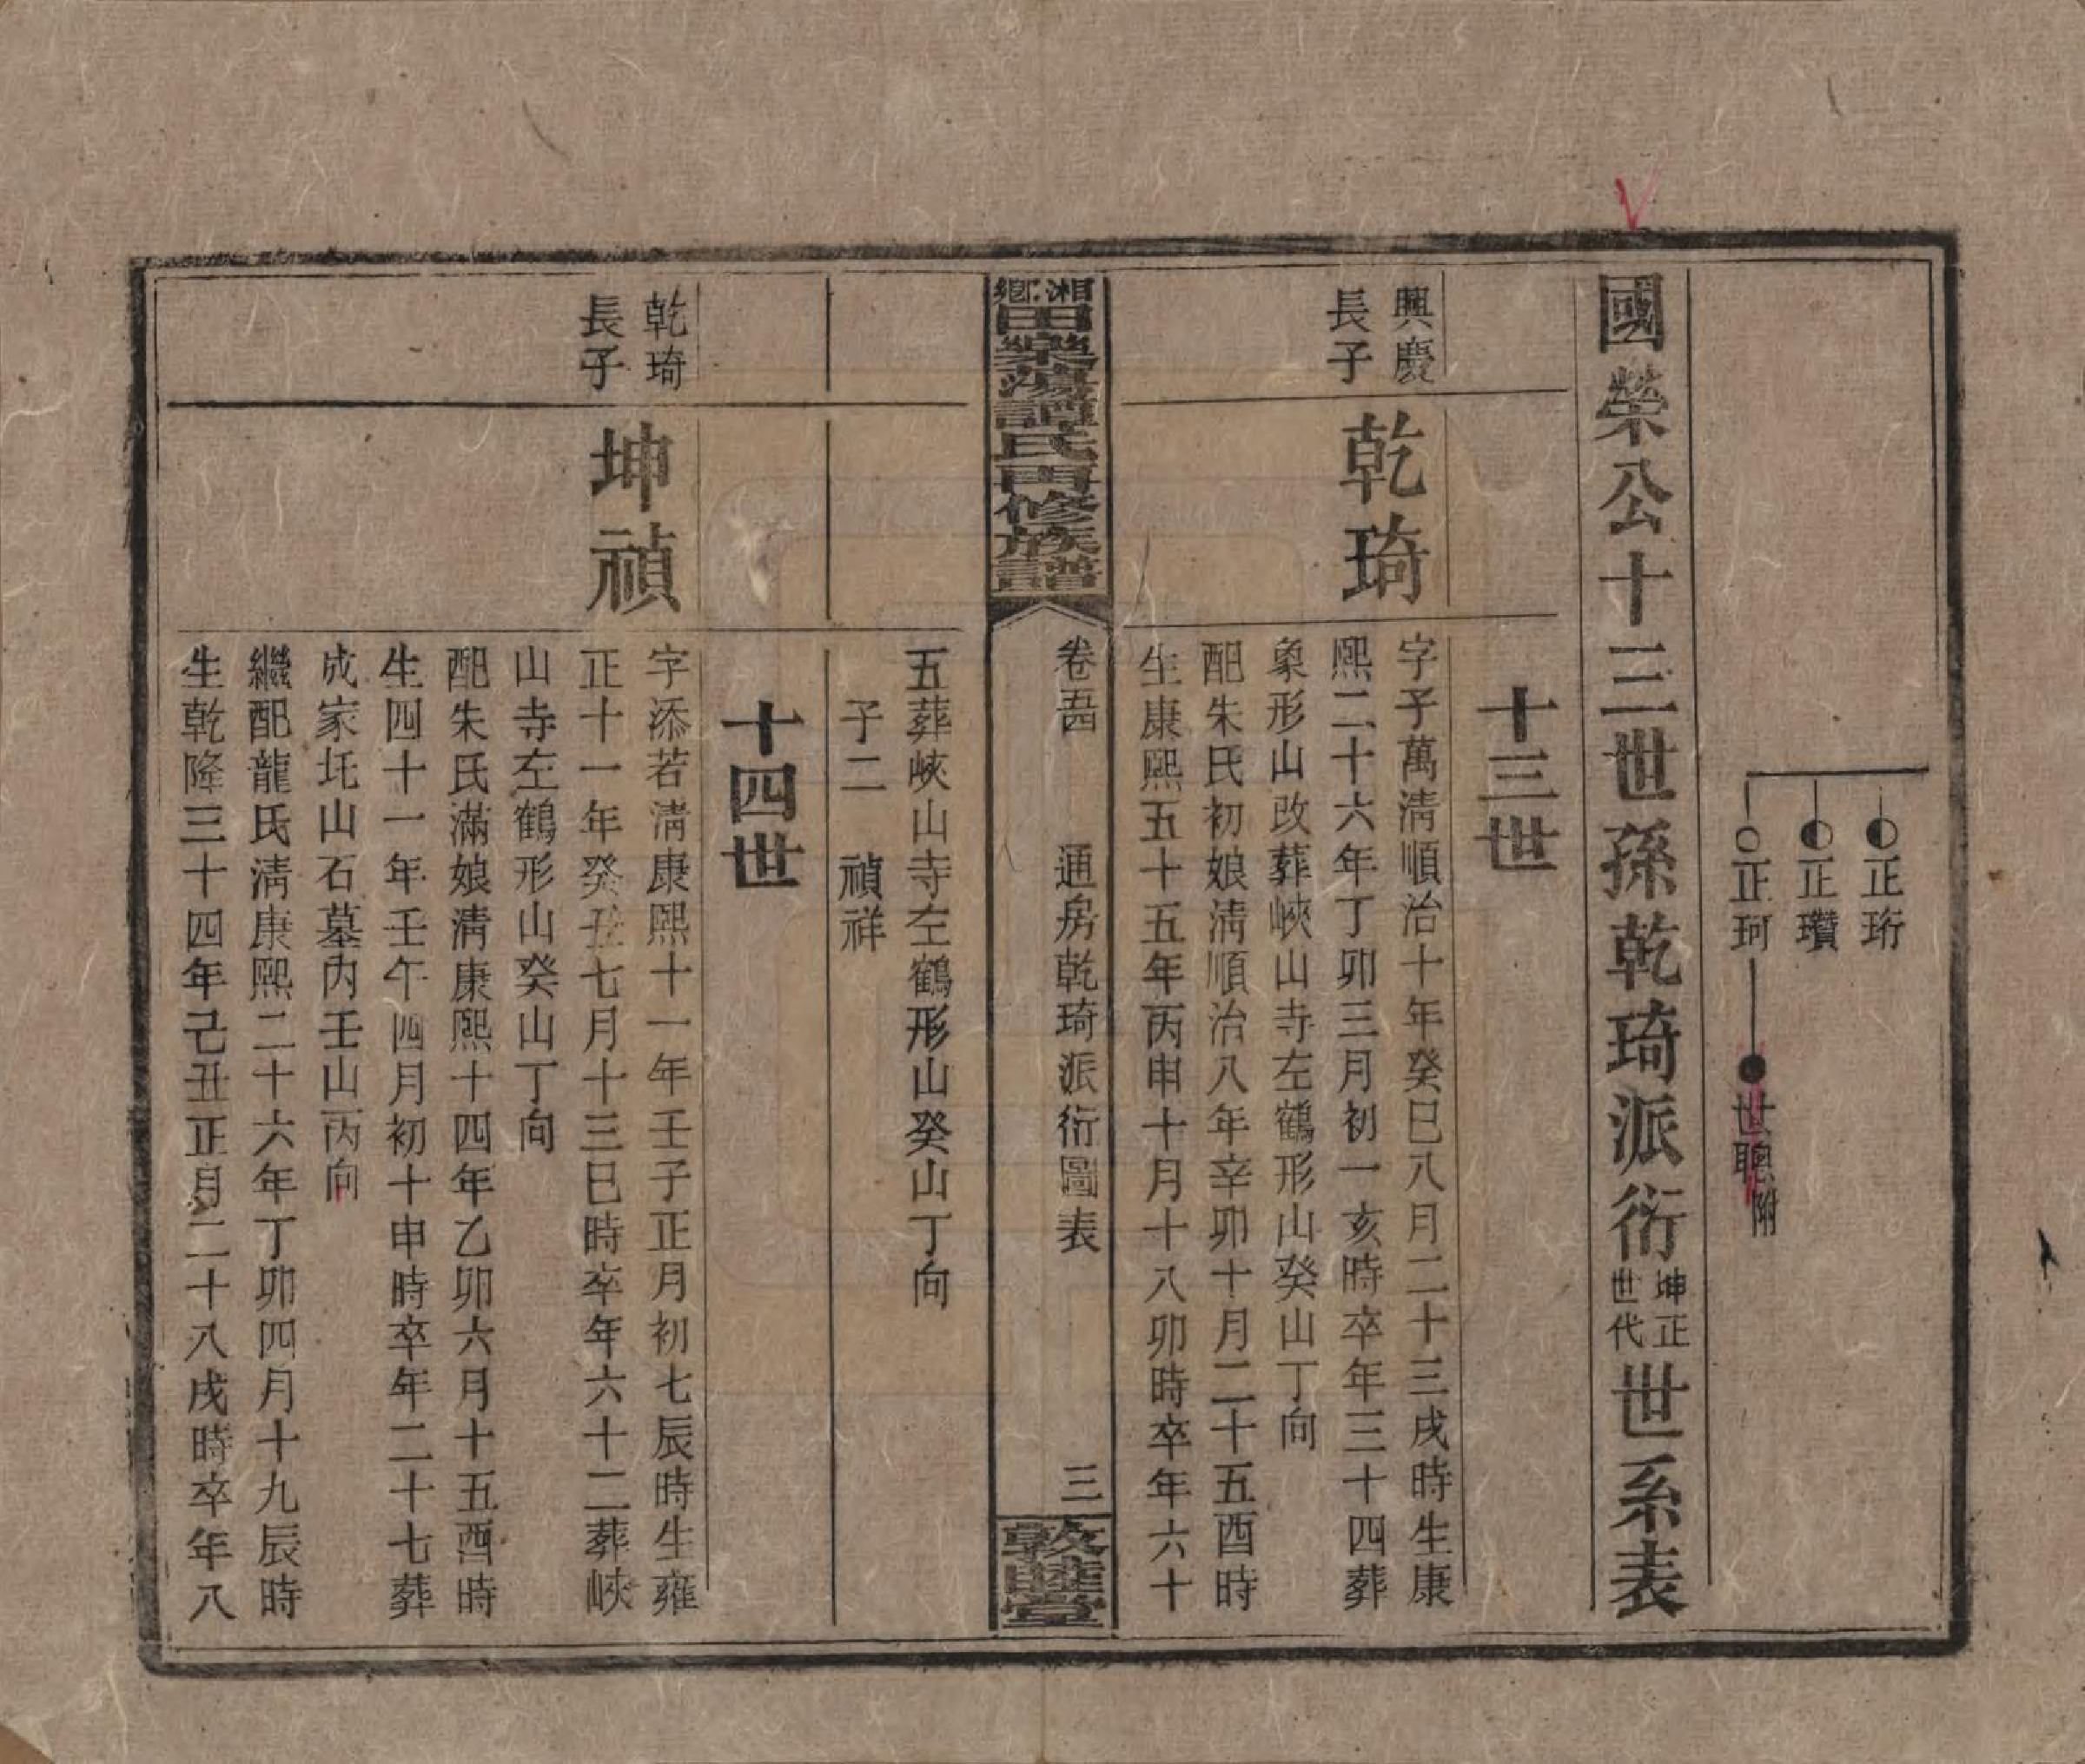 正珩
正瓚
正珂
世聰附
國榮公十三世孫乾琦派衍坤正世代世系表
十三世
興慶長子
乾琦
字子萬淸順治十年癸巳八月二十三戌時生康
熙二十六年丁卯三月初一亥時卒年三十四葬
象形山改葬峽山寺左鶴形山癸山丁向
配朱氏初娘淸順治八年辛卯十月二十五酉時
生康熙五十五年丙申十月十八卯時卒年六十
湘鄕田樂蕩譚氏再修族譜
卷五四
通房乾琦派衍圖表
三
敦睦堂
五葬峽山寺左鶴形山癸山丁向
子二 禎祥
十四世
乾琦長子
坤禎
字添若淸康熙十一年壬子正月初七辰時生雍
正十一年癸丑七月十三巳時卒年六十二葬峽
山寺左鶴形山癸山丁向
配朱氏滿娘淸康熙十四年乙卯六月十五酉時
生四十一年壬午四月初十申時卒年二十七葬
成家圫山石墓內壬山丙向
繼配龍氏淸康熙二十六年丁卯四月十九辰時
生乾隆三十四年己丑正月二十八戌時卒年八